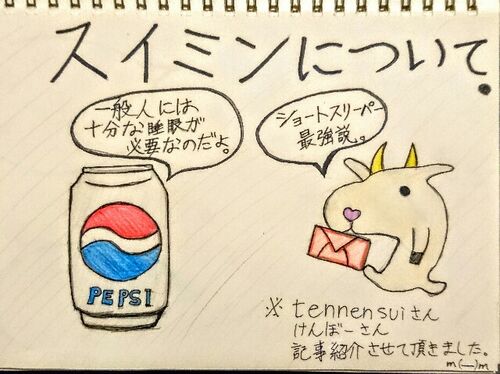 スイミンについて。
一般人には
十分な睡眠が
必要なのだよ。
ショートスリーパー
最強説。
PEPSI
※ tennensuiさん
けんぼーさん
記事紹介させて頂きました。
m(__)m